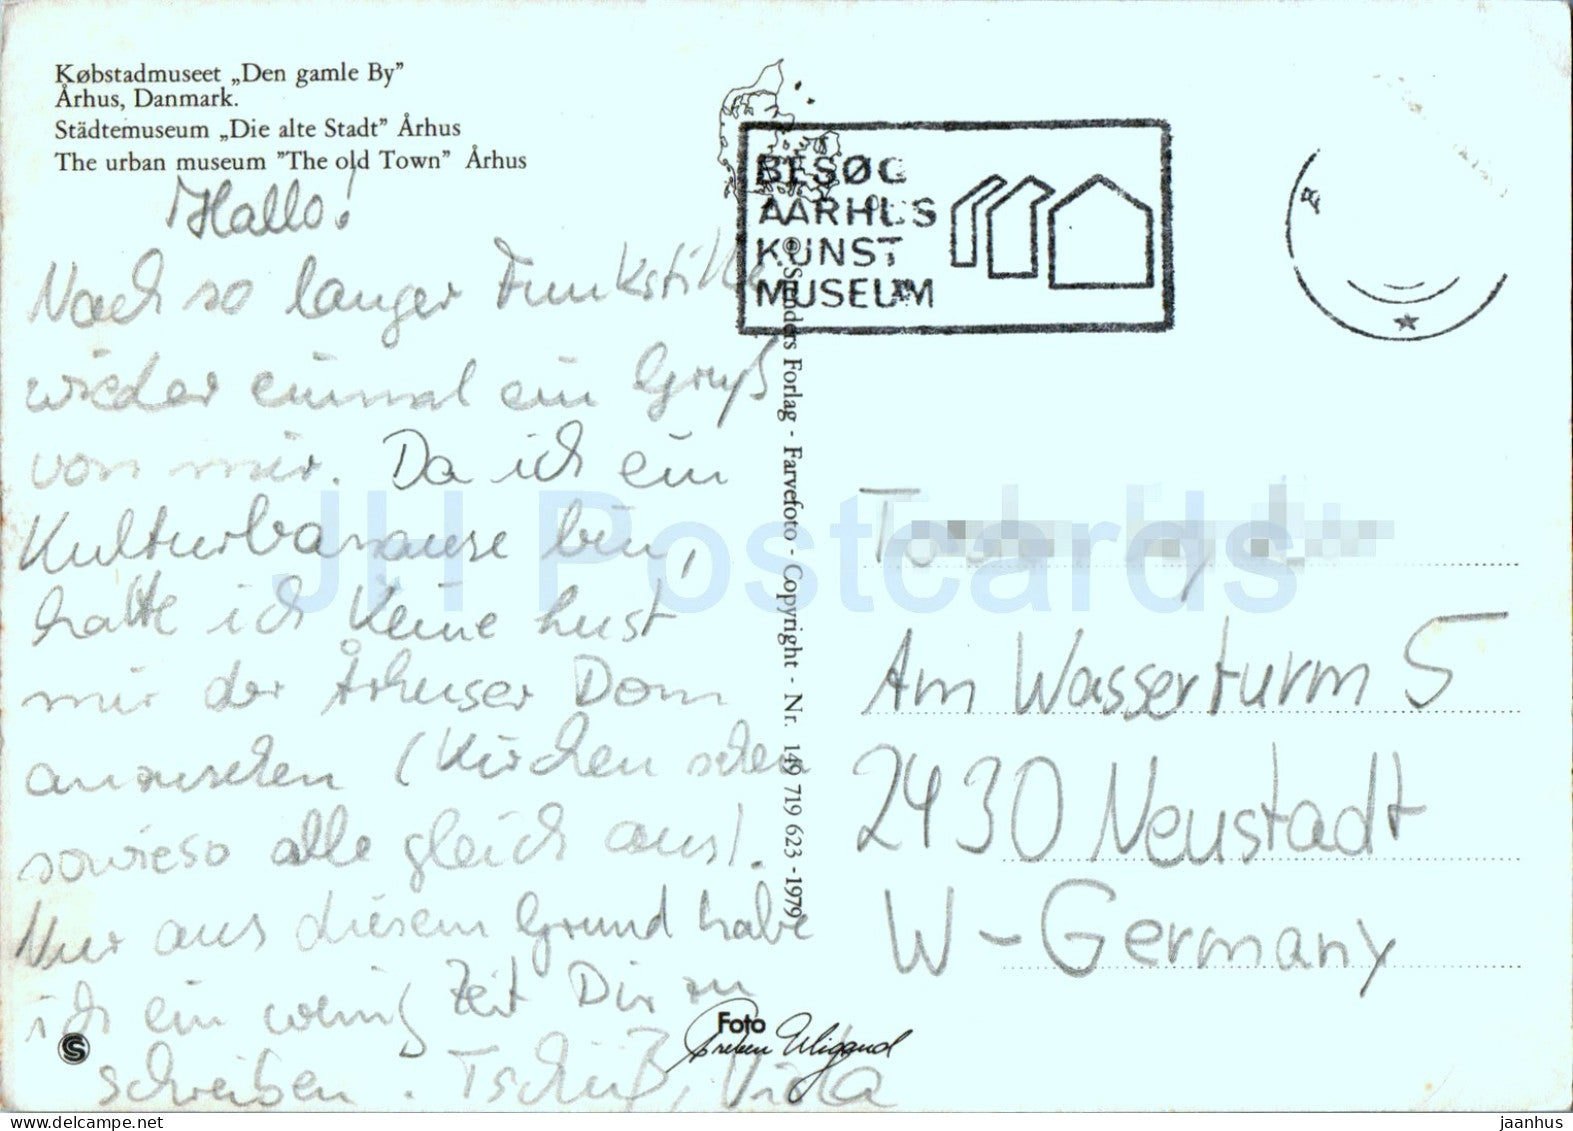 Købstadmuseet „Den gamle By”
Århus, Danmark.
Städtemuseum „Die alte Stadt” Århus
The urban museum ”The old Town” Århus
Hallo!
Nach so langer Funkstille
wieder einmal ein Gruß
von mir. Da ich ein
Kulturbanause bin,
hatte ich keine Lust
mir der Århuser Dom
anzusehen (Kirchen sehen
sowieso alle gleich aus).
Nur aus diesem Grund habe
ich ein wenig Zeit Dir zu
schreiben. Tschüß, Viola
BESØG
AARHUS
KUNST
MUSEUM
© Stenders Forlag - Farvefoto - Copyright - Nr. 149 719 623 - 1979
Am Wasserturm 5
2430 Neustadt
W-Germany
S
Foto
Preben Wiggand
JH Postcards
jaanhus | HipPostcard.com